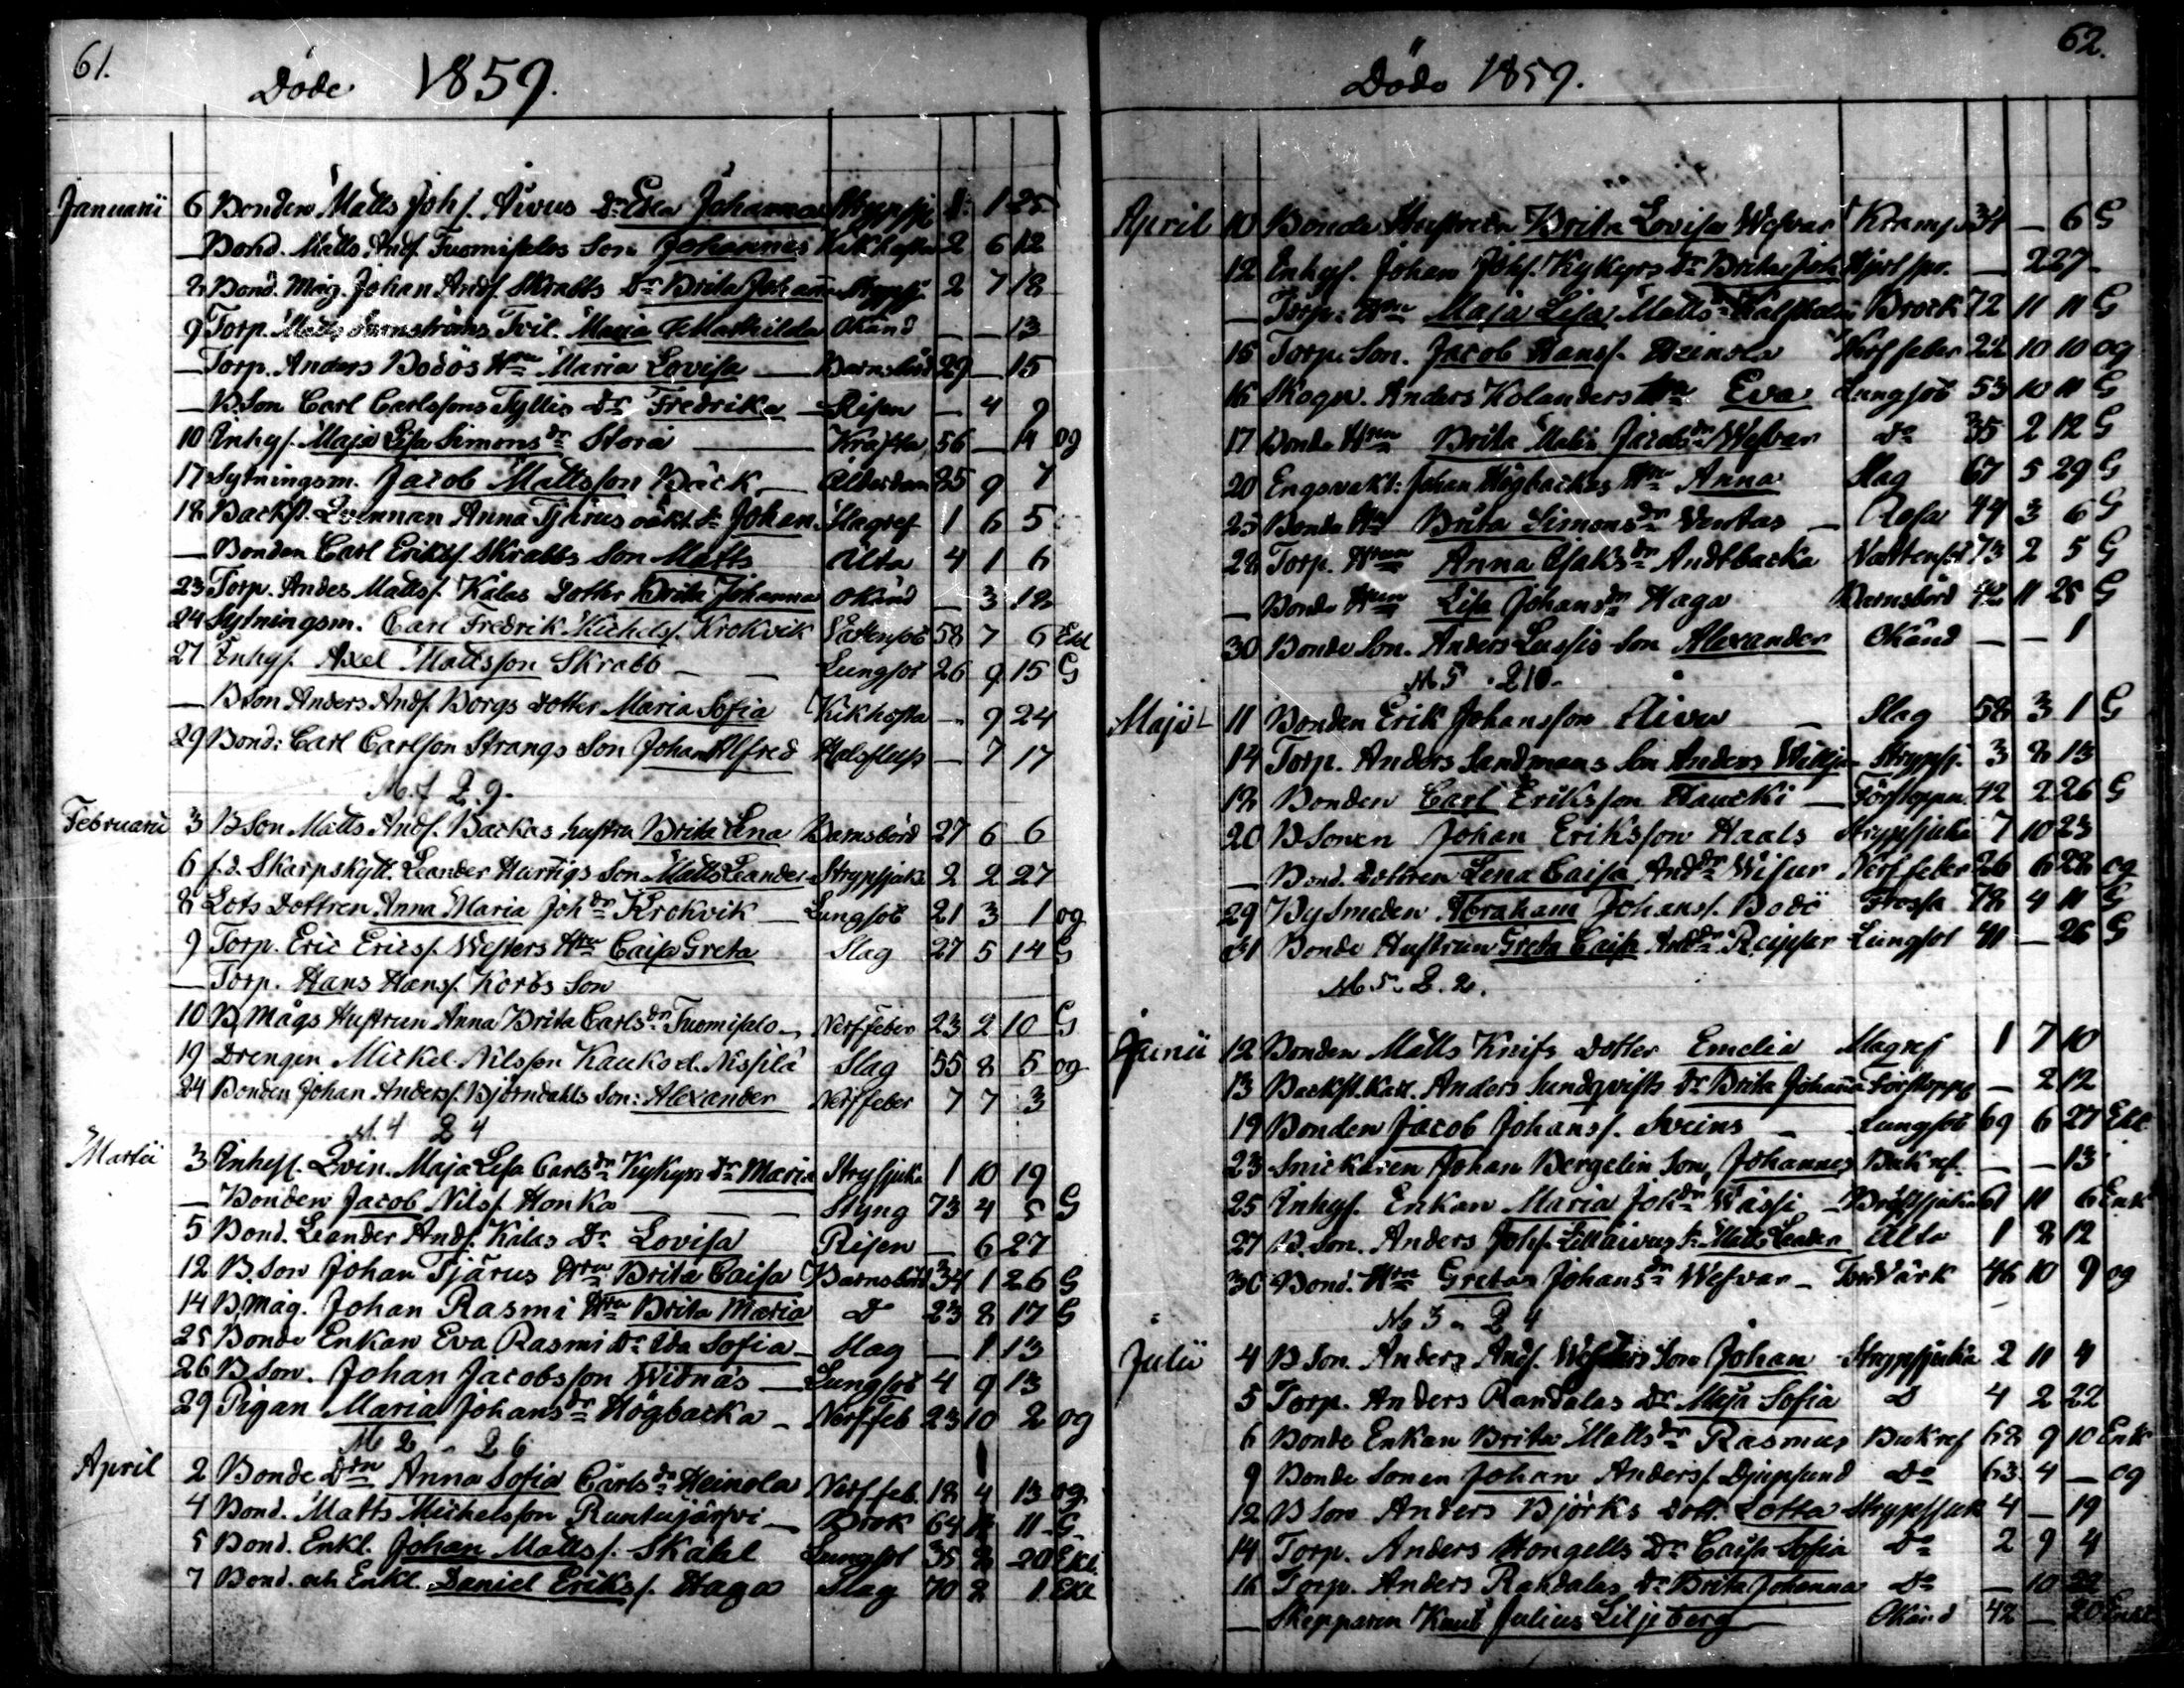 61.
Döde 1859.
Januarii 6 Bonden Matts Johs. Åivus Dr Eva Johanna Strypsj. 1 1 25
— Bond. Matts Ands. Tuomisalos Son Johannes Kikhosta 2 6 12
8 Bond. Måg. Johan Ands. Skrabbs Dr Brita Johanna Strypsj. 2 7 18
9 Torp. Matts Tvil. Maria & Mathilda Okänd — — 13
— Torp. Anders Bodös Hru Maria Lovisa — Barnsbörd 29 — 15
— B.Son Carl Carlssons Tyllis Dr Fredrika — Risen — 4 9
10 Inhys. Maja Lisa Simonsdr Storå — Kräfta 56 — 14 og
17 Sytningsm. Jacob Mattsson Bäck — Ålderdom 85 9 7
18 Backst. Qvinnan Anna Tjärus oäkt. Sn Johan Magref 1 6 5
— Bonden Carl Erikss. Skrabbs Son Matts Älta 4 1 6
23 Torp. Andes Mattss. Kalas Dotter Brita Johanna Okänd — 3 18
24 Sytningsm. Carl Fredrik Michelss. Krokvik Vattensot 58 7 6 Ekl
27 Inhys. Axel Mattsson Skrabb — — Lungsot 26 9 15 G
— B.Son Anders Ands. Borgs dotter Maria Sofia Kikhosta — 9 24
29 Bond: Carl Carlson Strangs Son Johan Alfred Halsfluss — 7 17
M. 7 Q. 9.
Februarii 3 B.Son Matts Ands. Backas hustru Brita Lena Barnsbörd 27 6 6
6 f.d. Skarpskytt. Leander Hartigs Son Matts Leander Strypsjuka 2 2 27
8 Lots Dottren Anna Maria Johdr Krokvik — Lungsot 21 3 1 og
9 Torp. Eric Ericss. Westers Hru Caisa Greta Slag 27 5 14 G
— Torp. Hans Hanss. Korbs Son
10 B. Mågs Hustrun Anna Brita Carlsdr Tuomisalo — Nerffeber 23 2 10 G
19 Drengen Mickel Nilsson Kauks el. Nissilä Slag 55 8 5 og
24 Bonden Johan Anderss. Björndahls Son: Alexander Nerffeber 7 7 3
M. 4 Q 4
Martii 3 Inhess. Qvin. Maja Lisa Carlsdr Kykyrs Dr Maria Strypsjuka 1 10 19
— Bonden Jacob Nilss. Honka — — — Styng 73 4 5 G
5 Bond. Leander Ands. Kalas Dr Lovisa Risen — 6 27
12 B.Son Johan Tjärus Hru Brita Caisa Barnsbörd 34 1 26 G
14 B.Måg. Johan Rasmi Hru Brita Maria Do 23 8 17 G
25 Bonde Enkan Eva Rasmi Dr Ida Sofia — Slag — 1 13
26 B.Son. Johan Jacobsson Widnäs — Lungsot 4 9 13
29 Pigan Maria Johansdr Högbacka — Nerffeb 23 10 2 og
M 2 " Q 6
April 2 Bonde Dtr Anna Sofia Carlsdr Heinola Nerffeb. 18 4 13 og
4 Bond. Matts Michelsson Runtujärfvi — Brok 64 11 G
5 Bond. Enkl. Johan Mattss. Skåhl Lungsot 35 8 20 Ekl.
7 Bond. och Enkl. Daniel Erikss. Haga Slag 70 8 1 Ekl
62.
Döde 1859.
April 10 Bonde Hustrun Brita Lovisa Wesvar Kramp 34 — 6 G
12 Inhys. Johan Johs. Kykyrs Dr Brita Joh — 2 27
— Torp. Hru Maja Lisa Mattsdr Brock 72 11 11 G
15 Torp. Son. Jacob Hanss. Heinola Nerffeber 22 10 10 og
16 Skogv. Anders Kolanders Hru Eva Lungsot 53 10 11 G
17 Bonde Hru Brita Maria Jacobsdr Wesvar Do 35 2 12 G
20 Engsvakt: Johan Högbackas Hru Anna Slag 67 5 29 G
25 Bonde Hru Brita Simonsdr Wentas — Rosa 49 3 6 G
28 Torp. Hrun Anna Isaksdr Andtbacka Vattensot 73 2 5 G
— Bonde Hrun Lisa Johansdr Haga Barnsbörd 42 11 25 G
30 Bonde Son. Anders Lassis Son Alexander Okänd — — 1
M 5 Q 10
Maji 11 Bonden Erik Johansson Åivu — Slag 58 3 1 G
14 Torp. Anders Sandmans Son Anders Wilhjm Strypsj. 3 8 13
18 Bonden Carl Eriksson Haucki — Förstoppn. 42 2 26 G
20 B.Sonen Johan Eriksson Haals Strypsjuka 7 10 23
— Bond. Dottren Lena Caisa Anddr Wisur Nerffeber 26 6 28 og
29 Bysmeden Abraham Johanss. Bodö Frossa 78 4 11 G
31 Bonde Hustrun Greta Caisa Anddr Reippar Lungsot 41 — 26 G
M. 5. Q. 2.
Junii 12 Bonden Matts Knifs dotter Emelia Magref 1 7 10
13 Backst.karl. Anders Sundqvists Dr Brita Johana Förstoppg — 2 12
19 Bonden Jacob Johanss. Sveins — Lungsot 69 6 27 Ekl
23 Snickaren Johan Bergelin Son Johannes Bukref. — — 13
25 Inhys. Enkan Maria Johdr Wassi — Bröstsjuka 61 11 6 Enk
27 B.Son. Anders Johs. Lillåivus Sn Matts Leander Älta 1 8 12
30 Bond. Hru Greta Johansdr Wesvar — Torrvärk 46 10 9 og
M 3 " Q 4
Julii 4 B.Son. Anders Ands. Westers Son Johan Strypsjuka 2 11 4
5 Torp. Anders Randalas Dr Maja Sofia D 4 2 22
6 Bonde Enkan Brita Mattsdr Rasmus Bukref 68 9 10 Enk
9 Bonde Sonen Johan Anderss. Djupsund Do 63 4 — og
12 B.Son Anders Björks dott. Lotta Strypsjuk 4 — 19
14 Torp. Anders Hongells Dr Caisa Sofia Do 2 9 4
16 Torp. Anders Randalas Dr Brita Johanna Do — 10 22
— Skepparen Knut Julius Liljeberg Okänd 42 — 20 Enkl.